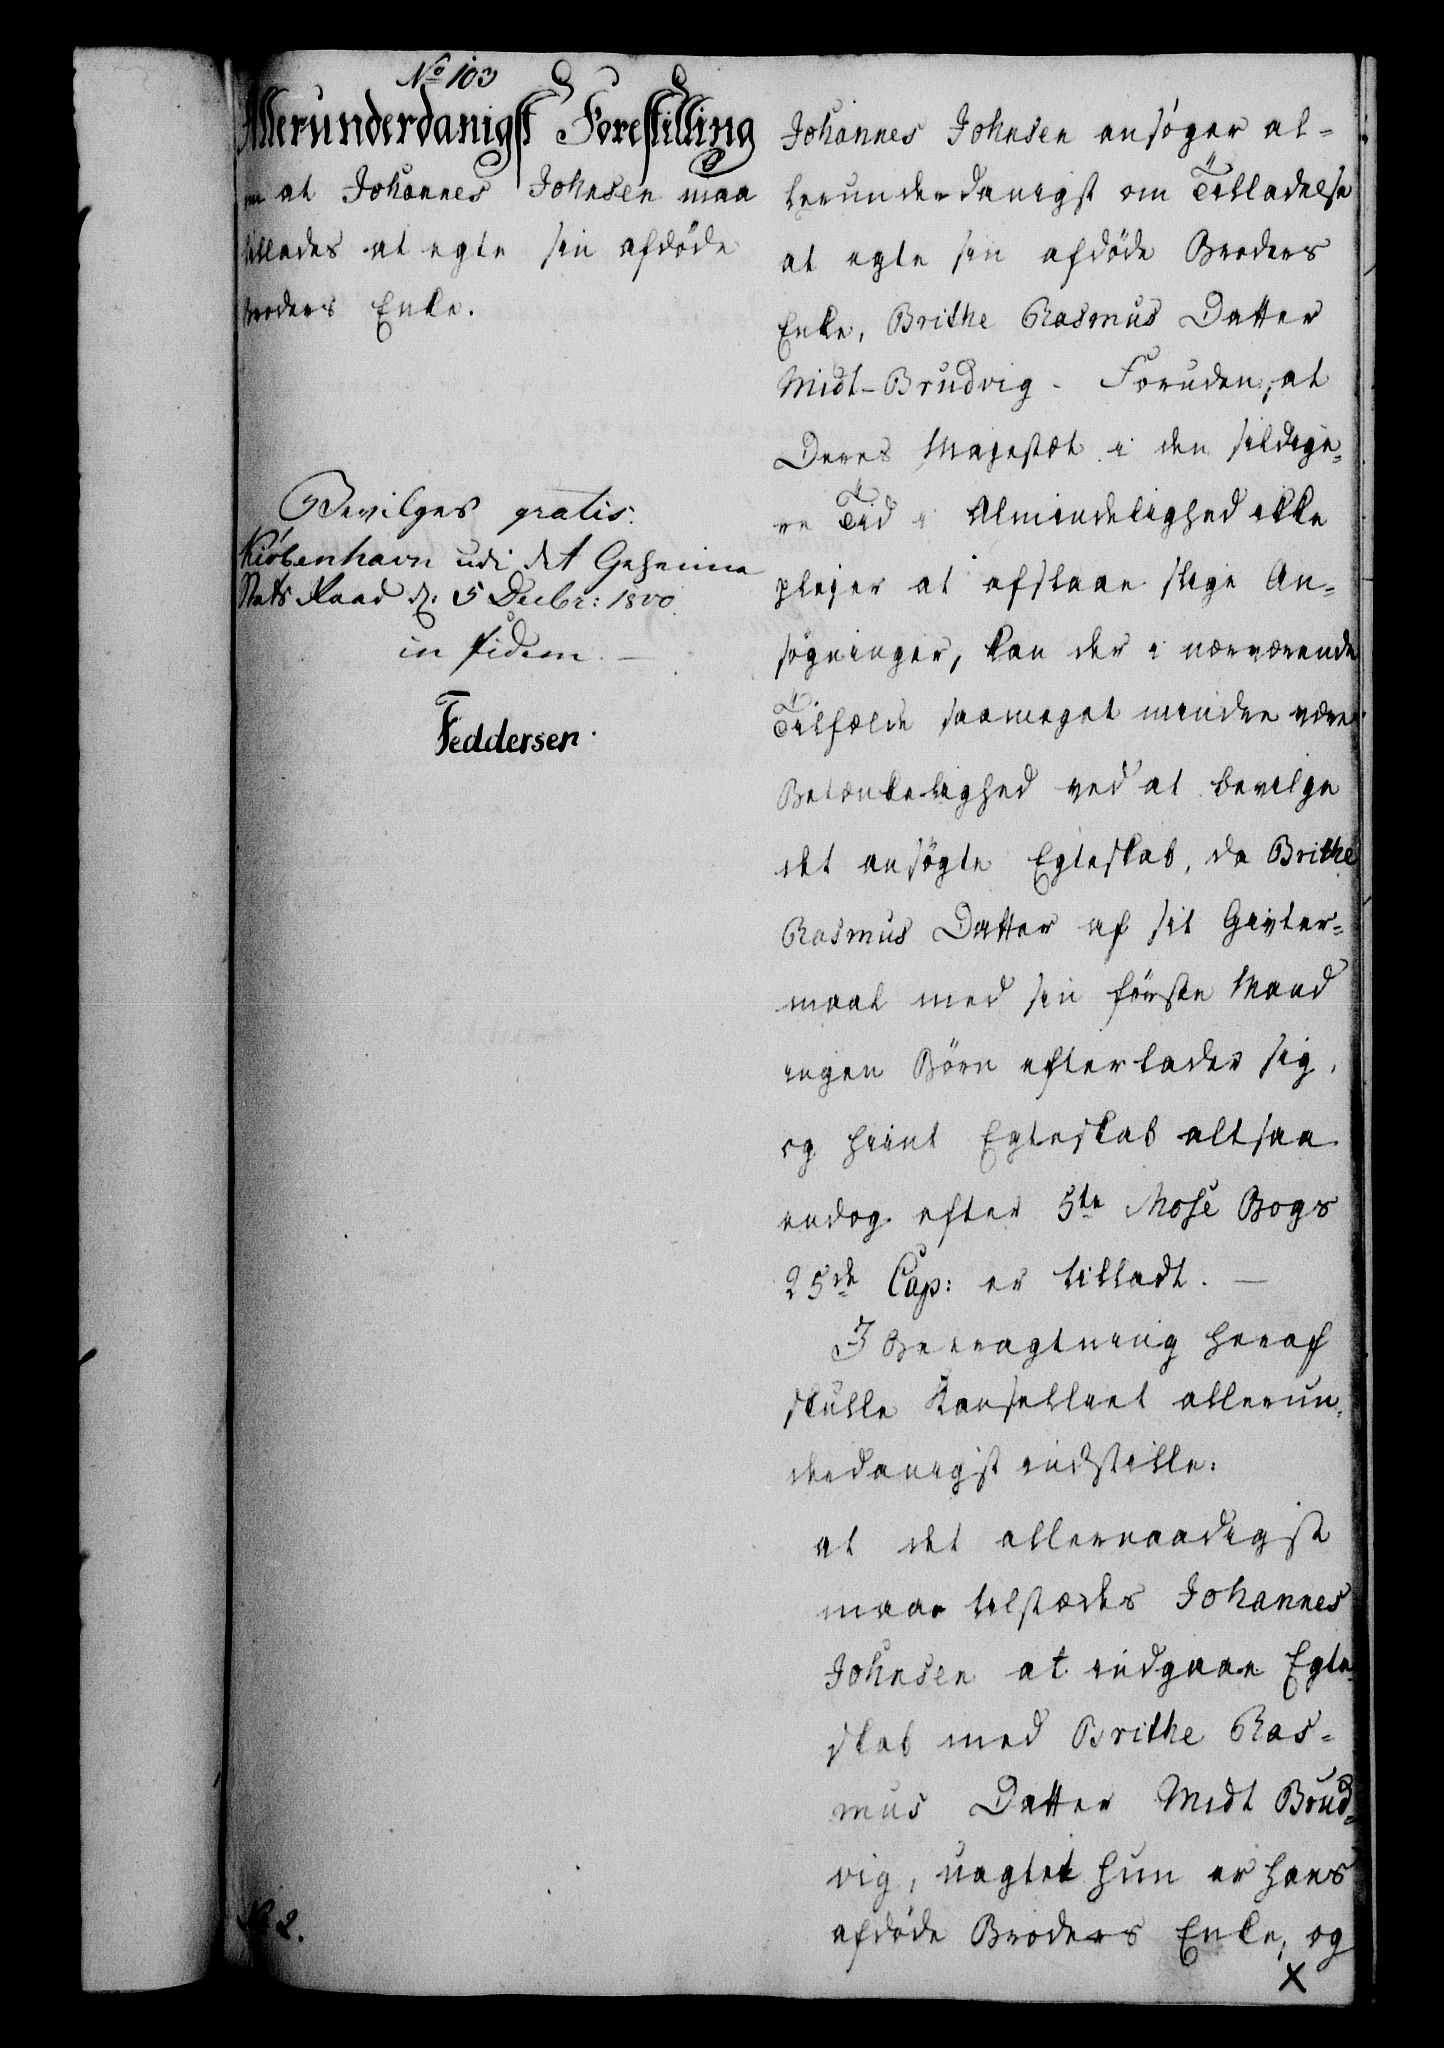 No 103
Allerunderdanigst Forestilling
om at Johannes Johnsen maa
tillades at egte sin afdöde
Broders Enke.
Bevilges gratis.
Kiöbenhavn udi det Geheime
Stats Raad d: 5 Decbr: 1800.
in fidem. —
Feddersen.
Johannes Johnsen ansöger al-
lerunderdanigst om Tilladelse
at egte sin afdöde Broders
Enke, Brithe Rasmus Datter
Midt-Brudvig. Foruden, at
Deres Majestæt i den sildige-
re Tid i Almindelighed ikke
plejer at afslaae slige An-
søgninger, kan der i nærværende
Tilfælde saameget mindre være
Betænkelighed ved at bevilge
det ansögte Egteskab, da Brithe
Rasmus Datter af sit Givter-
maal med sin förste Mand
ingen Börn efterlader sig,
og hiint Egteskab altsaa
endog efter 5te Mose Bogs
25de Cap: er tilladt. —
I Betragtning heraf
skulle Kanselliet allerun-
derdanigst indstille:
at det allernaadigst
maae tilstædes Johannes
Johnsen at indgaae Egte-
skab med Brithe Ras-
mus Datter Midt Brud-
vig, uagtet hun er hans
afdöde Broders Enke, og
X
2.